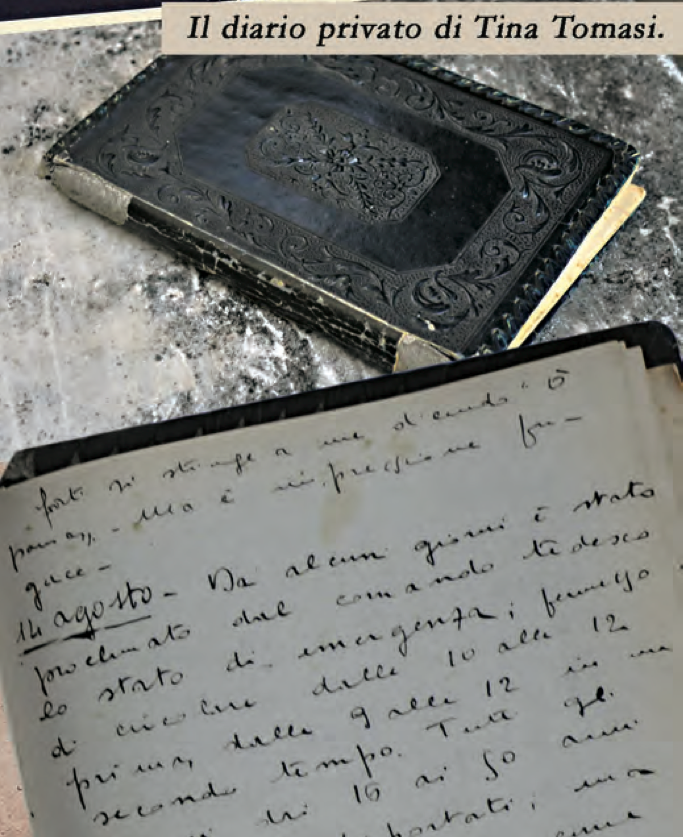 Il diario privato di Tina Tomasi.
forti si stringe a me dicendo: "Ò
paura„. Ma è impressione fu-
gace-
14 agosto - Da alcuni giorni è stato
proclamato dal comando tedesco
lo stato di emergenza; permesso
di circolare dalle 10 alle 12
prima, dalle 9 alle 12 in un
secondo tempo. Tutti gli
dai 16 ai 50 anni